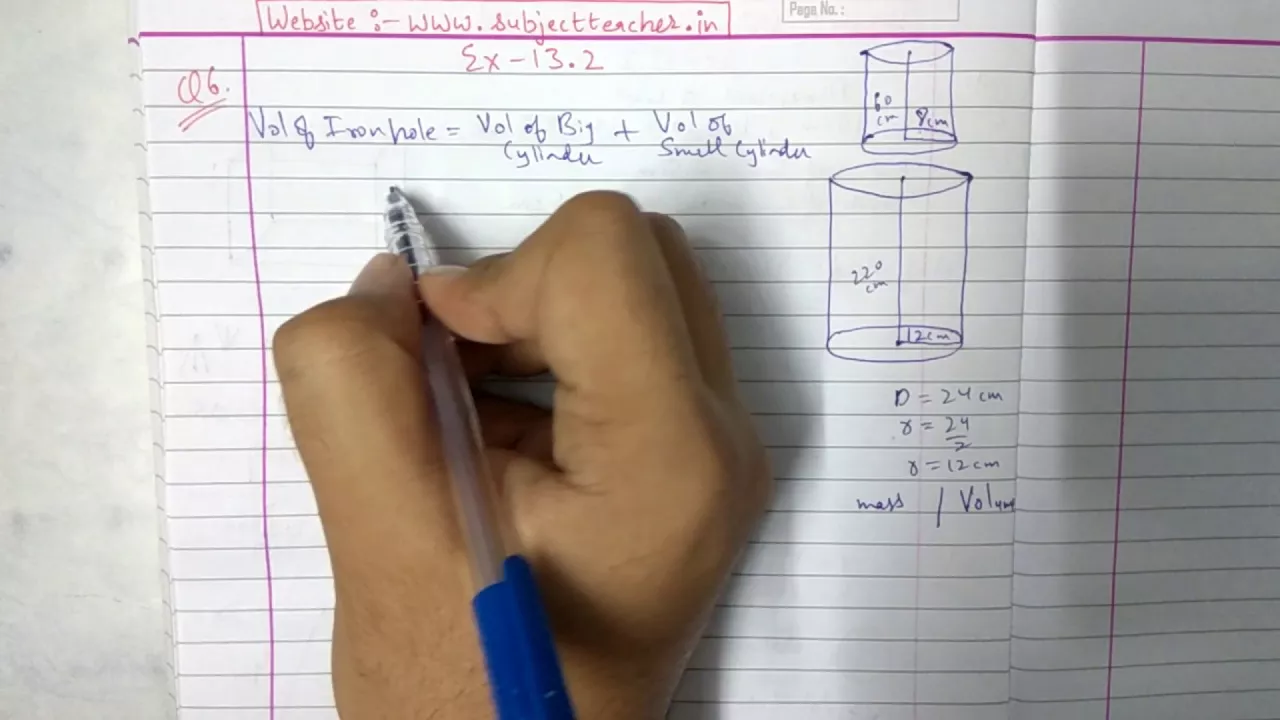 Website :- www.subjectteacher.in
Page No.:
Ex-13.2
Q6.
Vol of Iron pole = Vol of Big Cylinder + Vol of Small Cylinder
60 cm
8cm
220 cm
12cm
D = 24 cm
r = 24/2
r = 12 cm
mass | Volume